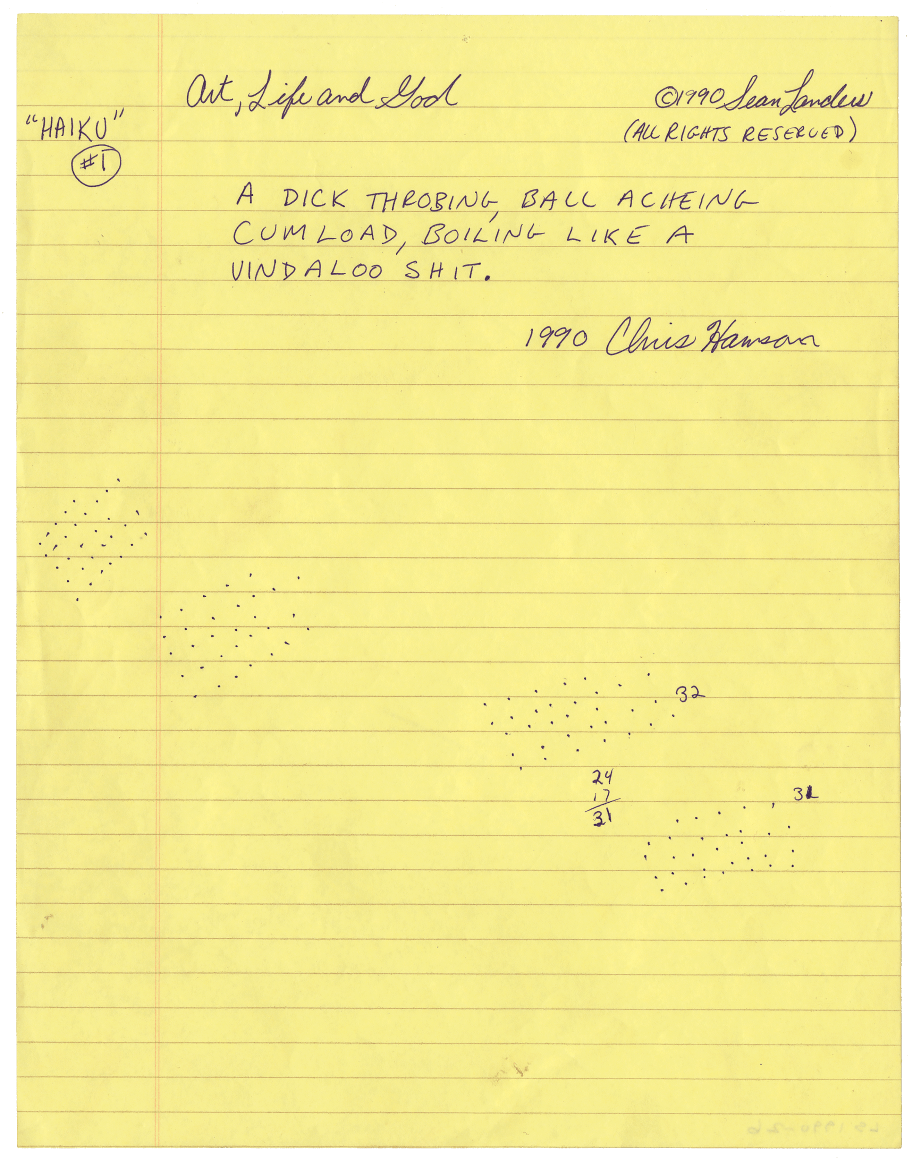 Art, Life and God
©1990 Sean Landers
(ALL RIGHTS RESERVED)
"HAIKU"
#1
A DICK THROBING, BALL ACHEING
CUM LOAD, BOILING LIKE A
VINDALOO SHIT.
1990 Chris Hamson
32
24
17
31
31
LS 1990-26